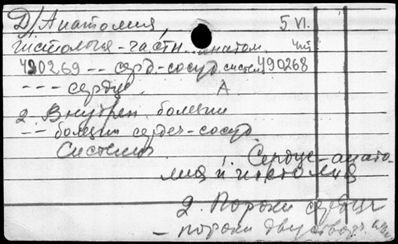 Д/Анатомия, 5 VI.
гистология - частн. анатом. чит
490269 -- серд-сосуд систем 490268
--- сердце A
2. Внутрен. болезни
-- болезни сердеч-сосуд.
Системы
1. Сердце-анато-
мия и гистология
2. Пороки сердца
- пороки двуствор.